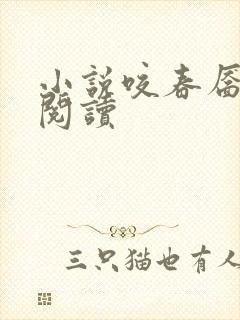 小說咬春靨
閱讀
三只猫也有人